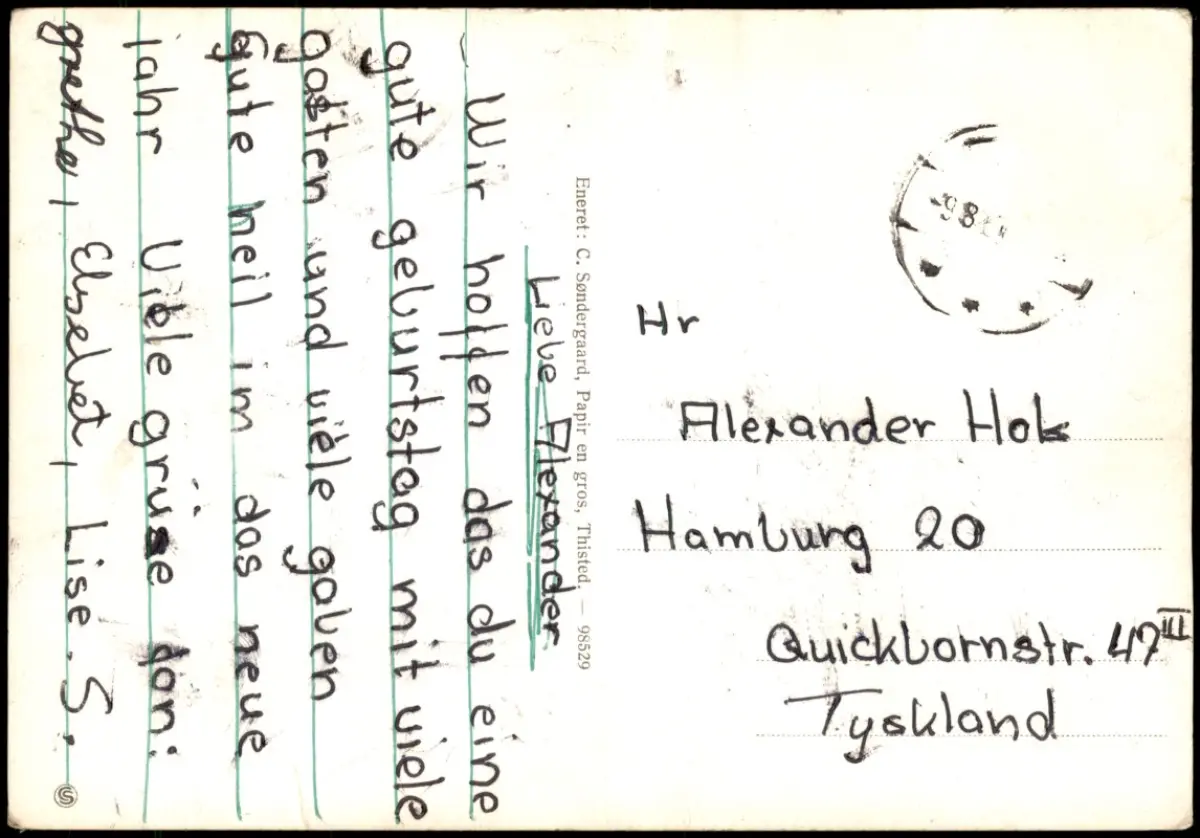 Liebe Alexander
Wir hoffen das du eine
gute geburtstag mit viele
gasten und viele gaben
Gute heil im das neue
jahr Viele grüse don:
grethe, Elsebet, Lise. S.
Eneret: C. Søndergaard, Papir en gros, Thisted. — 98529
Hr
Alexander Hok
Hamburg 20
Quickbornstr. 47 III
Tyskland
S